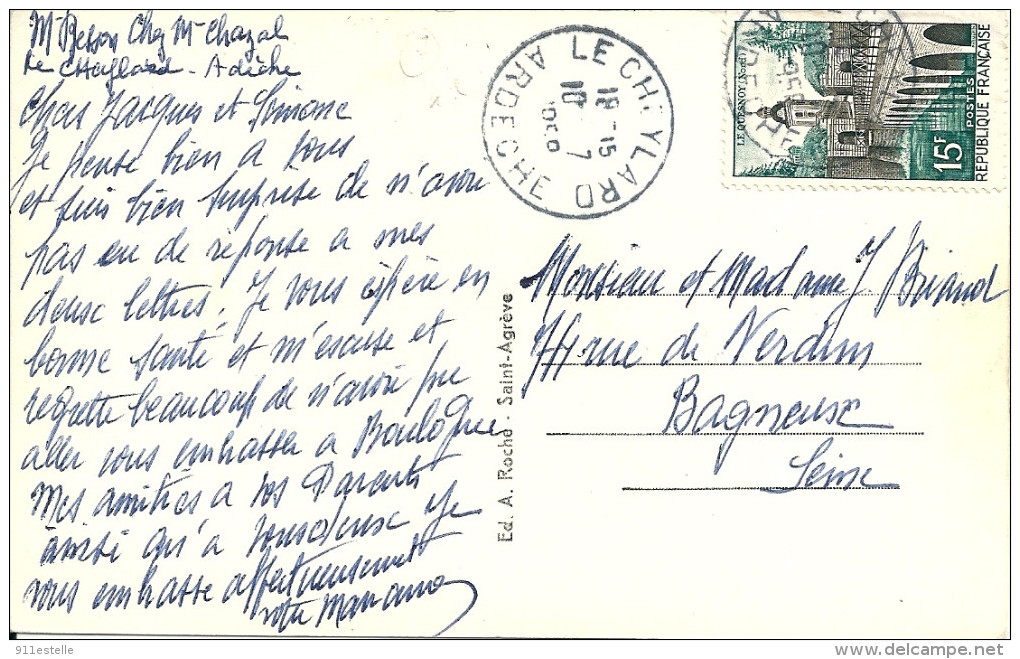 M Besson Chez Mr Chazal
Le Chaylard - Ardèche
Chers Jacques et Simone
Je pense bien a vous
et suis bien surprise de n'avoir
pas eu de réponse a mes
deux lettres. Je vous éspère en
bonne santé et m'escuse et
regrette beaucoup de n'avoir pu
aller vous embrasser a Boulogne
Mes amitiés a vos Parents
ainsi qu'a vous deux Je
vous embrasse affectueusement
votre
LE CHEYLARD
18-15
10 7
ARDECHE
LE QUESNOY (Nord)
15F
POSTES
REPUBLIQUE FRANÇAISE
Monsieur et Madame J Briand
rue de Verdun
Bagneux
Seine
Ed. A. Roche - Saint-Agrève
911estelle
delcampe.net